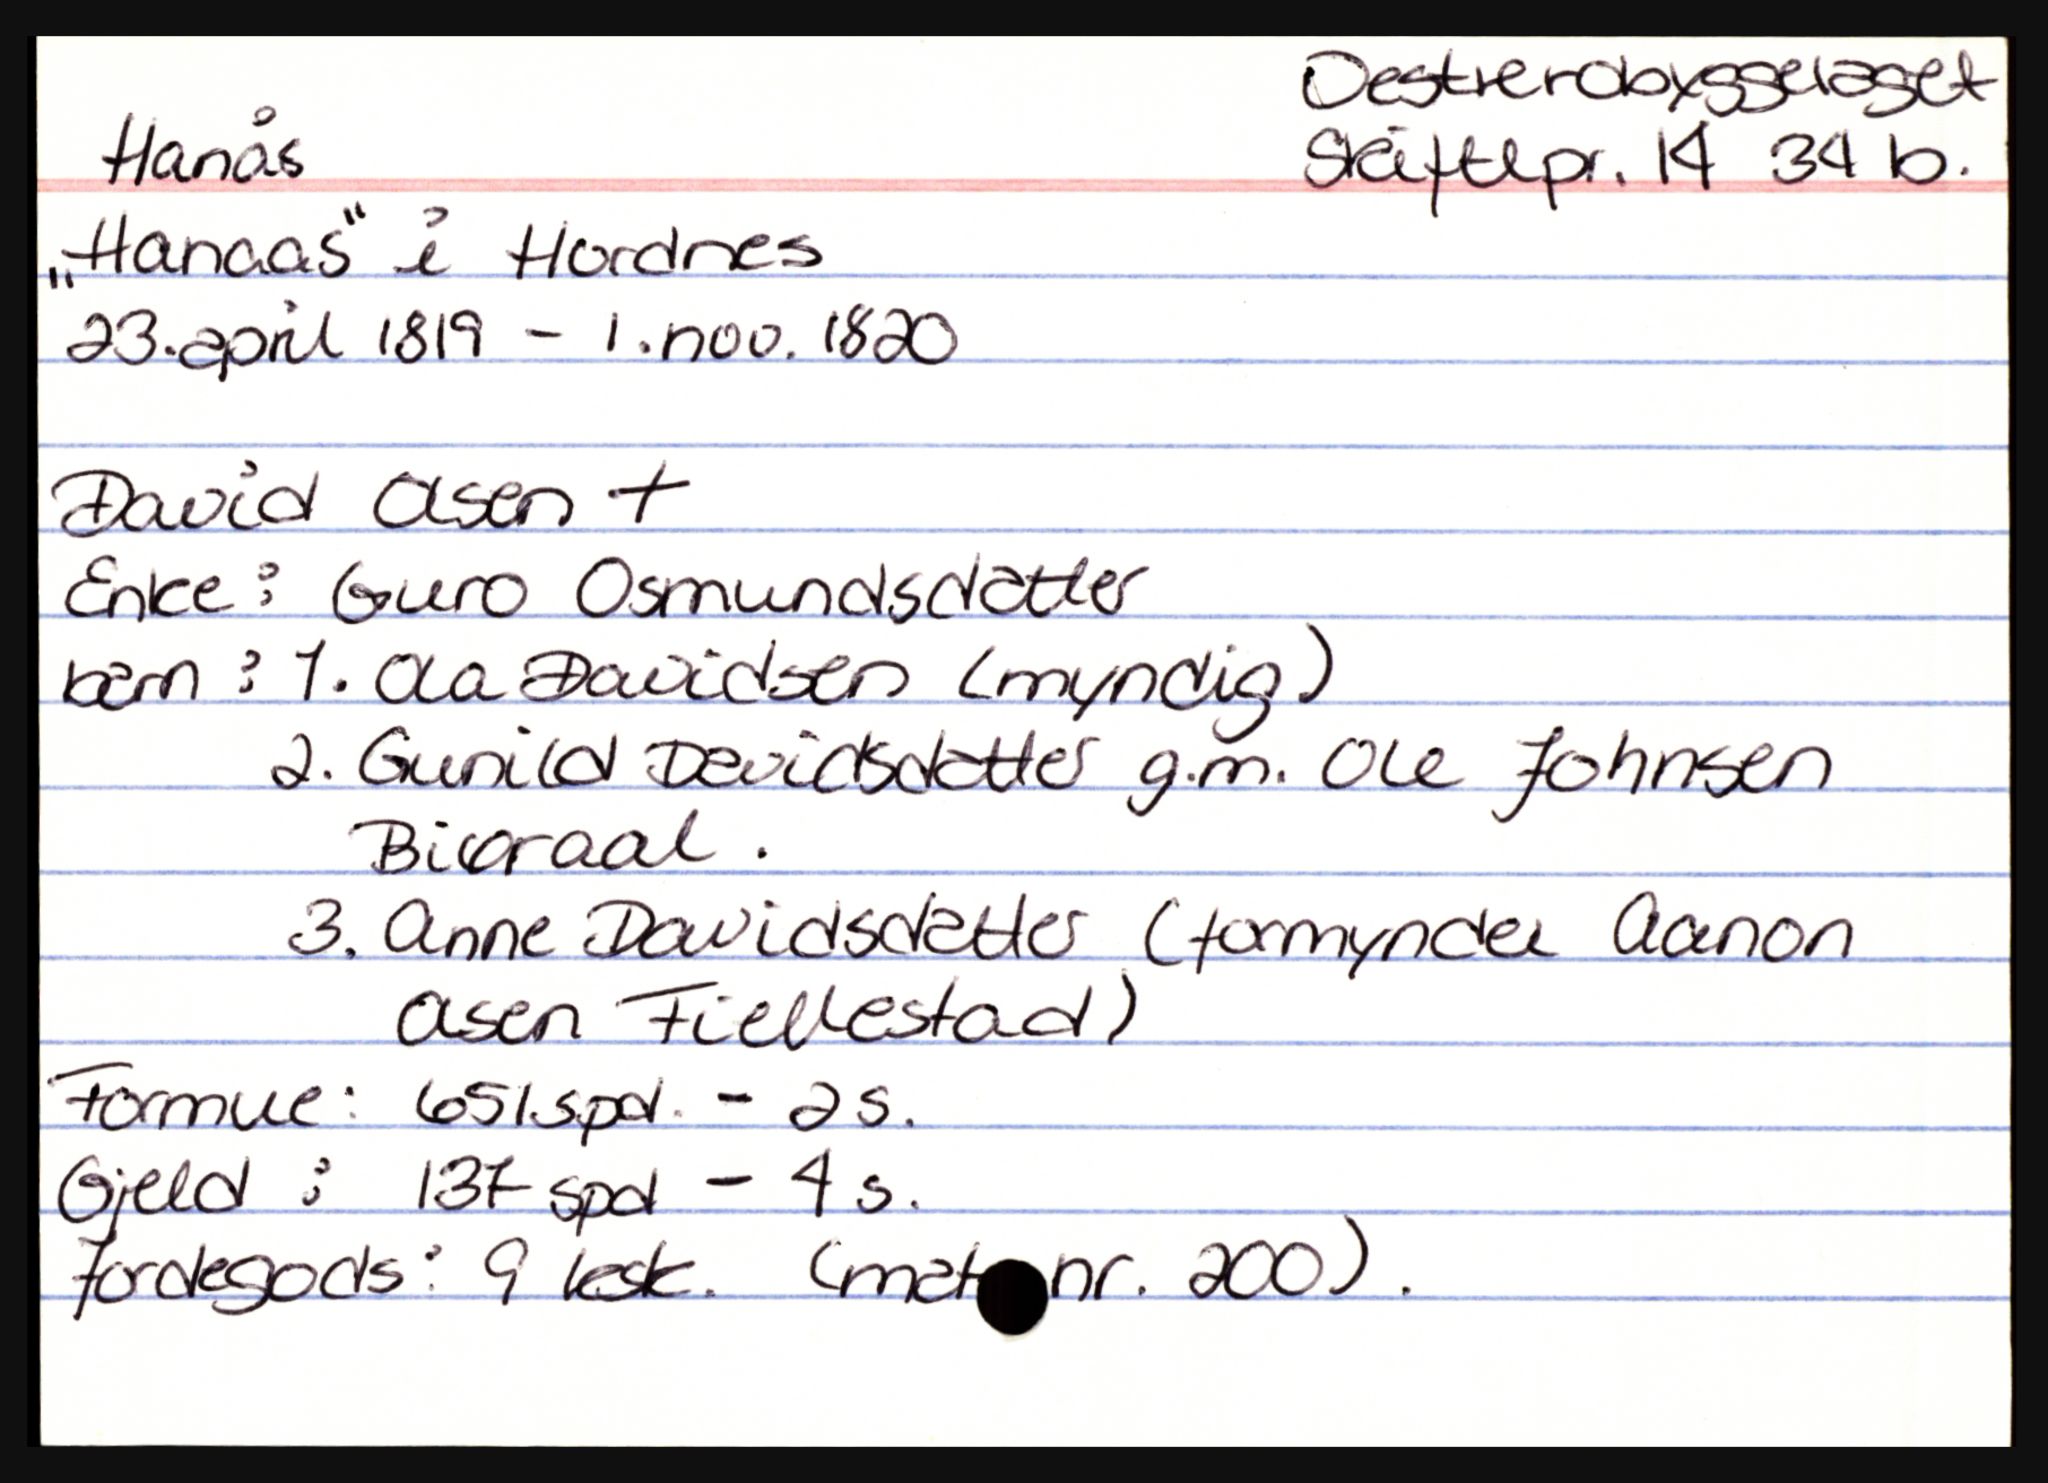 Oestrerobyggelaget
Hanås
Skiftepr. 14 34 b.
„Hanaas" i Hordnes
23. april 1819 - 1. nov. 1820
David Olsen +
Enke : Guro Osmundsdatter
barn : 1. Ola Davidsen (myndig)
2. Gunild Davidsdatter g.m. Ole Johnsen
3. Anne Davidsdatter (formynder Aanon
Olsen Fiellestad)
Formue: 651 spd. - 2 s.
Gjeld : 137 spd - 4 s.
Jordegods: 9 lesk. (matr nr. 200).